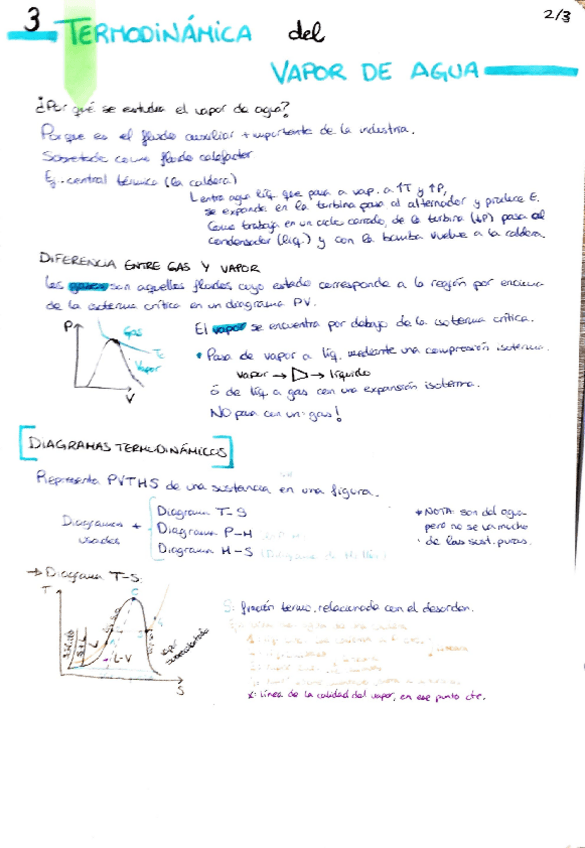 3 TERMODINÁMICA del
2/3
VAPOR DE AGUA
¿Por qué se estudia el vapor de agua?
Porque es el fluido auxiliar + importante de la industria.
Sobretodo como fluido calefactor
Ej. central térmica (la caldera)
L entra agua líq. que pasa a vap. a ↑T y ↑P,
se expande en la turbina pasa al alternador y produce E.
Como trabaja en un ciclo cerrado, de la turbina (↓P) pasa al
condensador (liq.) y con la bomba vuelve a la caldera.
DIFERENCIA ENTRE GAS Y VAPOR
Los gases son aquellos fluidos cuyo estado corresponde a la región por encima
de la isoterma crítica en un diagrama PV.
P
Gas
Tc
Vapor
V
El vapor se encuentra por debajo de la isoterma crítica.
• Pasa de vapor a líq. mediante una compresión isoterma.
vapor → ▷ → líquido
ó de líq. a gas con una expansión isoterma.
NO pasa con un gas!
DIAGRAMAS TERMODINÁMICOS
Representa PVTHS de una sustancia en una figura.
Diagramas +
usados
Diagrama T-S
Diagrama P-H
Diagrama H-S
* NOTA: son del agua
pero no se va mucho
de las sust. puras.
→ Diagrama T-S:
T
C
L
L-V
vapor
sobrecalentado
S
S: función termo. relacionada con el desorden.
x: línea de la calidad del vapor, en ese punto cte.